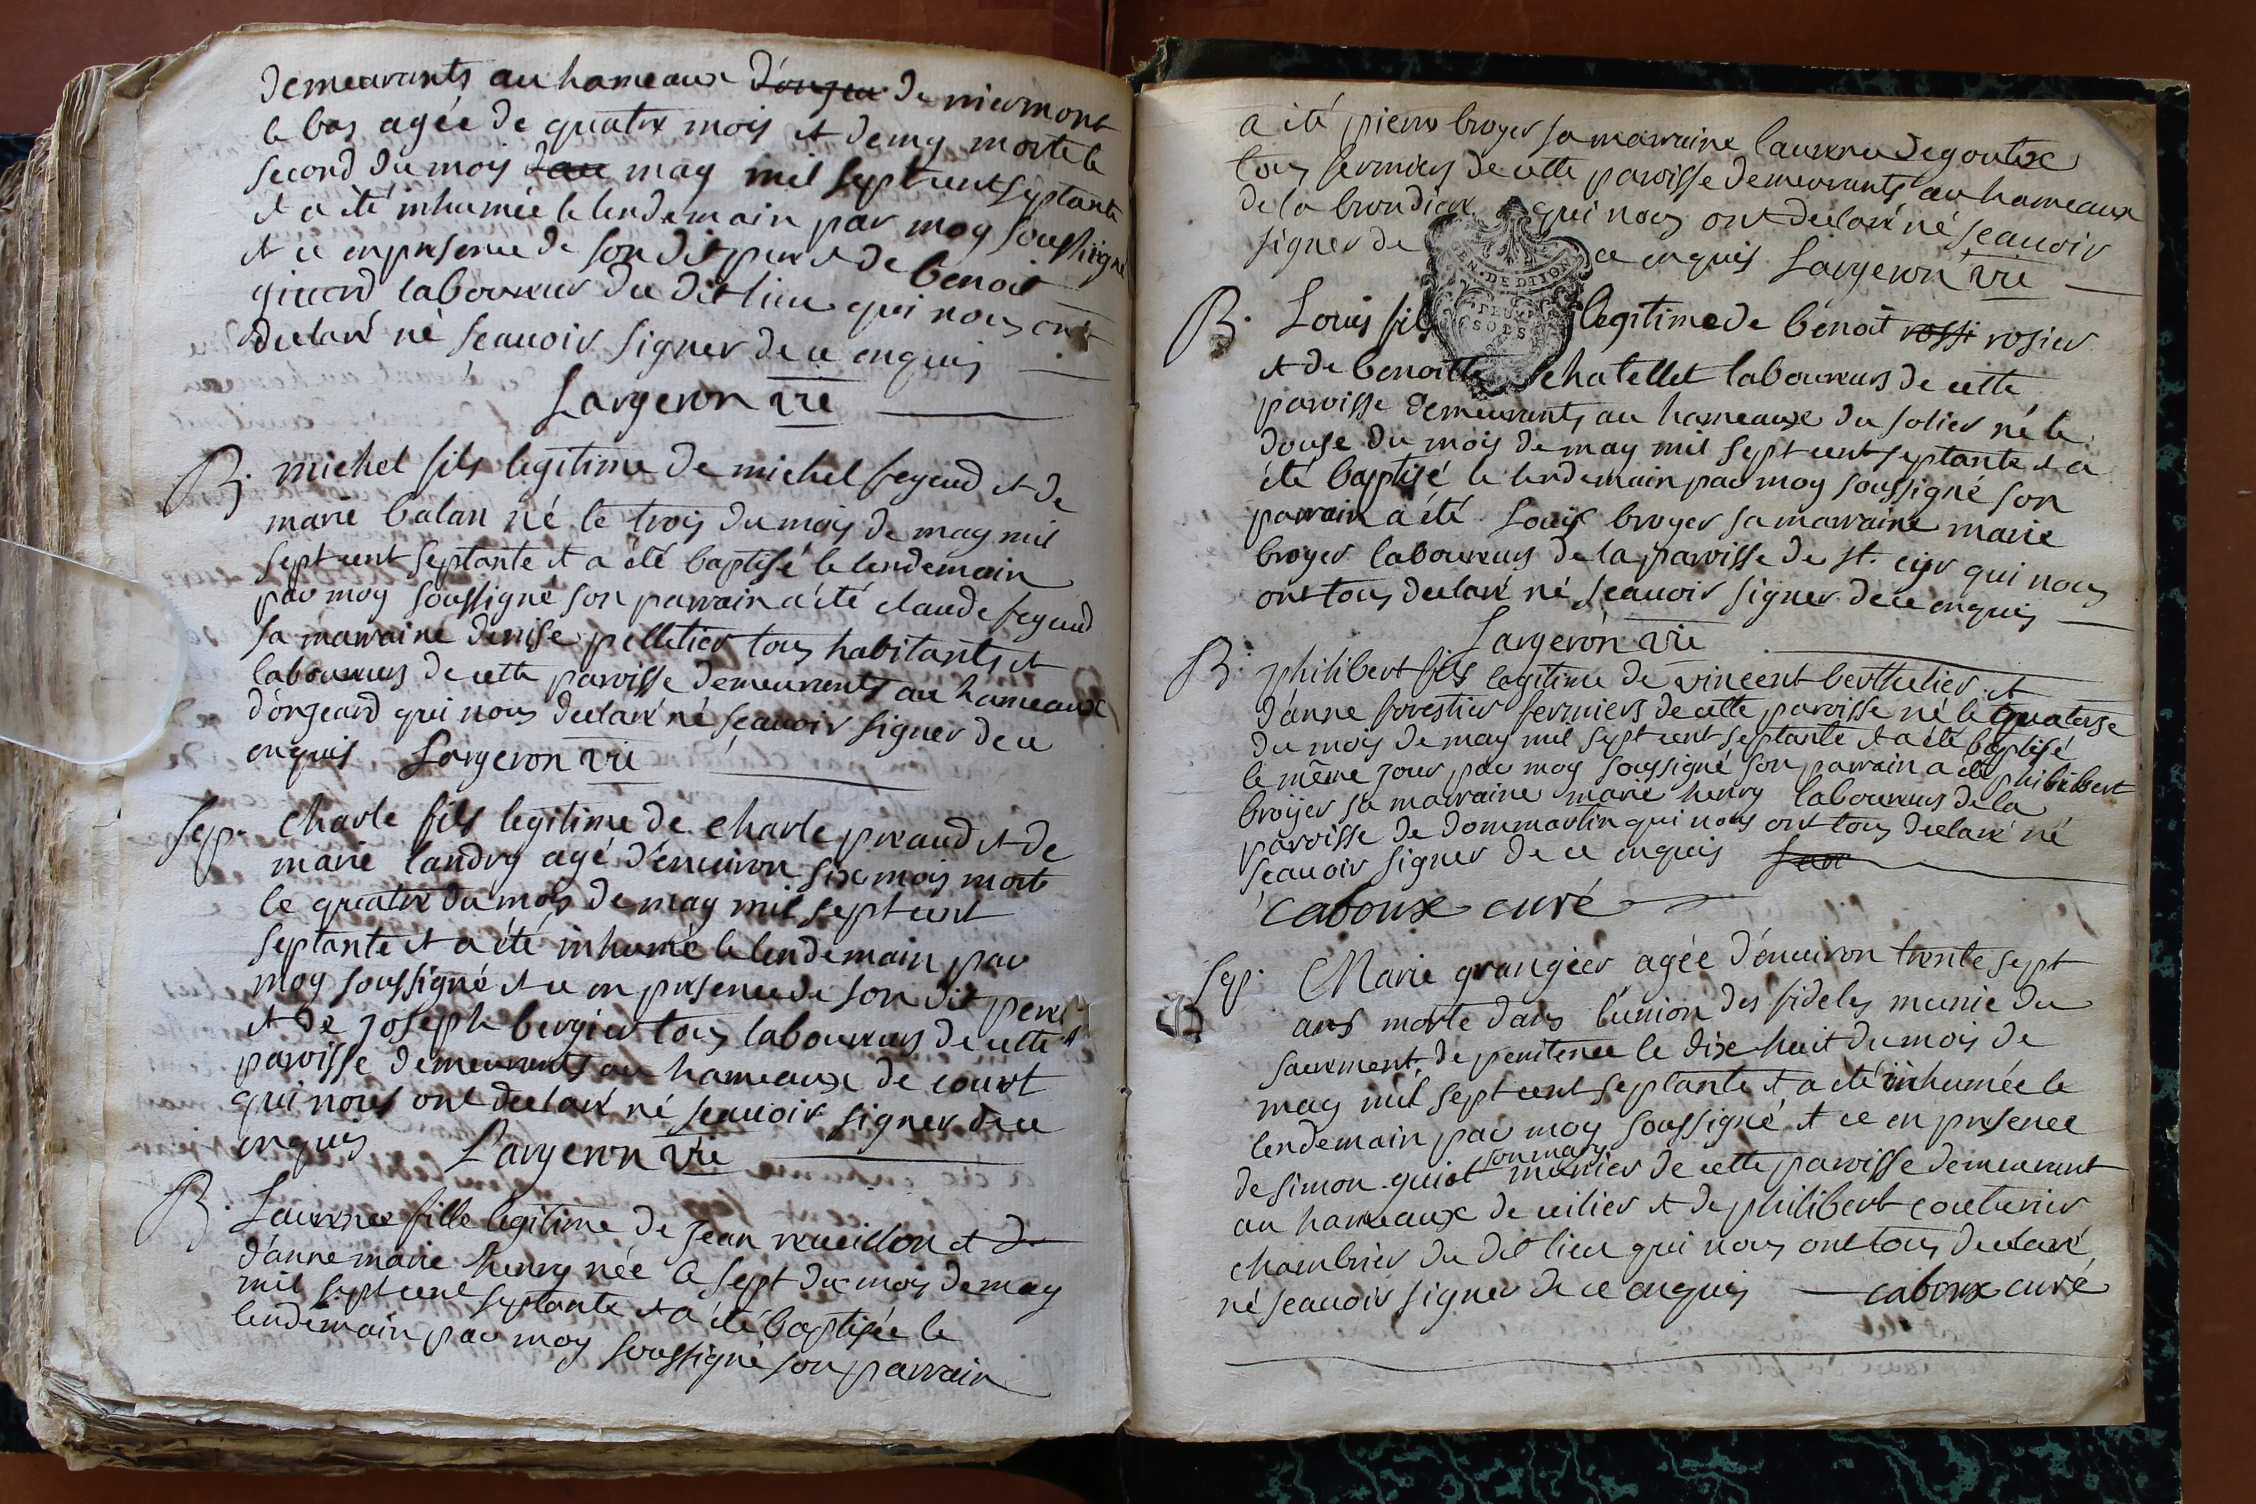 demeurants au hameaux d'ongea de miermont
le bas agée de quatre mois et demy morte le
second du mois dau may mil sept cent septante
et a été inhumée le lendemain par moy soussigné
et ce en presence de son dit pere et de benoit
giscard laboureur du dit lieu qui nous ont
declaré né scauoir signer de ce enquis
Largeron vic
B. michel fils legitime de michel feyeud et de
marie balan né le trois du mois de may mil
sept cent septante et a été baptisé le lendemain
par moy soussigné son parrain a été claude feyeud
sa marraine denise pelletier tous habitants et
laboureurs de cette paroisse demeurants au hameaux
d'ongeard qui nous declaré né scauoir signer de ce
enquis Largeron vic
Sep. Charle fils legitime de charle preaud et de
marie landry agé d'enuiron six mois mort
le quatre du mois de may mil sept cent
septante et a été inhumé le lendemain par
moy soussigné et ce en presence de son dit pere
et de joseph bergier tous laboureurs de cette
paroisse demeurants au hameaux de court
qui nous ont declaré né scauoir signer de ce
enquis Largeron vic
B. Laurence fille legitime de jean reueillon et d
d'anne marie henry née le sept du mois de may
mil sept cent septante et a été baptisée le
lendemain par moy soussigné son parrain
a été pierre broyer sa marraine laurence degoutte
tous fermiers de cette paroisse demeurants au hameaux
de la brondiere qui nous ont declaré né scauoir
signer de ce enquis Largeron vic
GEN. DE DIJON
DEUX
SOLS
B. Louis fils legitime de benoit rossi rosier
et de benoitte chatellet laboureurs de cette
paroisse demeurants au hameaux du solier né le
douse du mois de may mil sept cent septante et a
été baptisé le lendemain par moy soussigné son
parrain a été Louis broyer sa marraine marie
broyer laboureurs de la paroisse de st. cyr qui nous
ont tous declaré né scauoir signer de ce enquis
Largeron vic
B. philibert fils legitime de vincent berthelier et
d'anne forestier fermiers de cette paroisse né le quatorse
du mois de may mil sept cent septante et a été baptisé
le même jour par moy soussigné son parrain a été philibert
broyer sa marraine marie henry laboureurs de la
paroisse de dommartin qui nous ont tous declaré né
scauoir signer de ce enquis Lar
caboux curé
Sep. Marie grangier agée d'enuiron trente sept
ans morte dans l'union des fideles munie du
sacrement de penitence le dix huit du mois de
may mil sept cent septante et a été inhumée le
lendemain par moy soussigné et ce en presence
son mary
de simon guiot munier de cette paroisse demeurant
au hameaux de uilier et de philibert couturier
chambrier du dit lieu qui nous ont tous declaré
né scauoir signer de ce enquis caboux curé